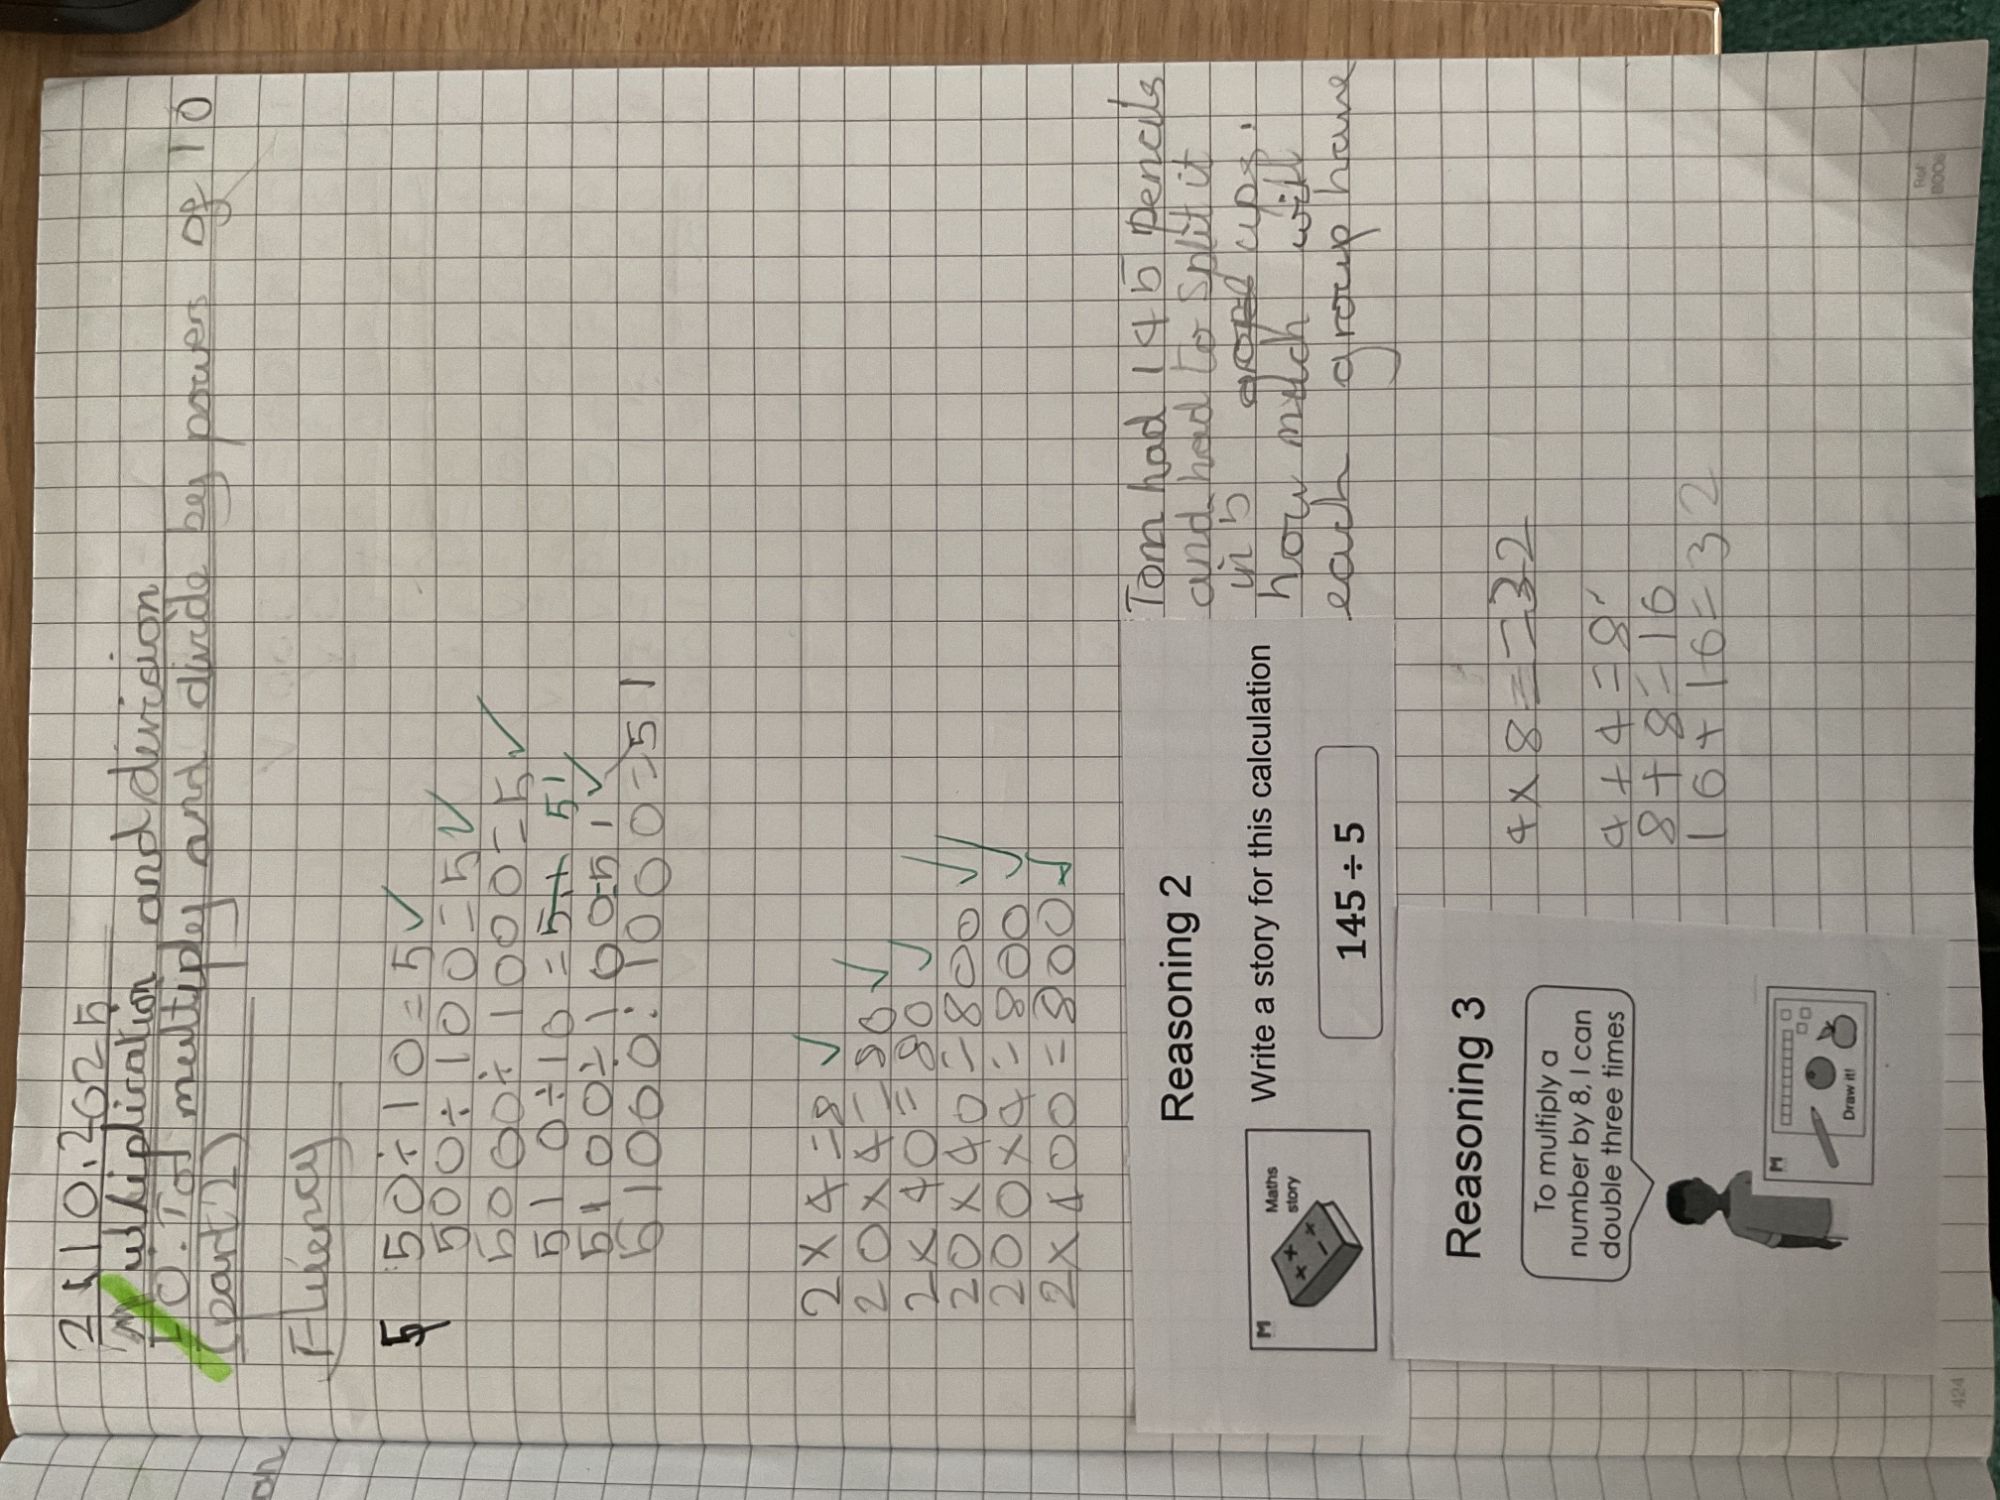 21.10.2025
Multiplication and division
LO: To multiply and divide by powers of 10
(part 2)
Fluency
5 50÷10=5 ✓
500÷100=5 ✓
5000÷1000=5 ✓
510÷10=51
5100÷100=51 ✓
51000÷1000=51
2×4=8 ✓
20×4=80 ✓
2×40=80 ✓
20×40=800 ✓
200×4=800 ✓
2×400=800 ✓
Reasoning 2
Write a story for this calculation
M
Maths
story
145 ÷ 5
Tom had 145 pencils
and had to split it
in 5 ups.
how much will
each group have
Reasoning 3
To multiply a
number by 8, I can
double three times
M
Draw it!
4×8=32
4+4=8
8+8=16
16+16=32
424
Ref